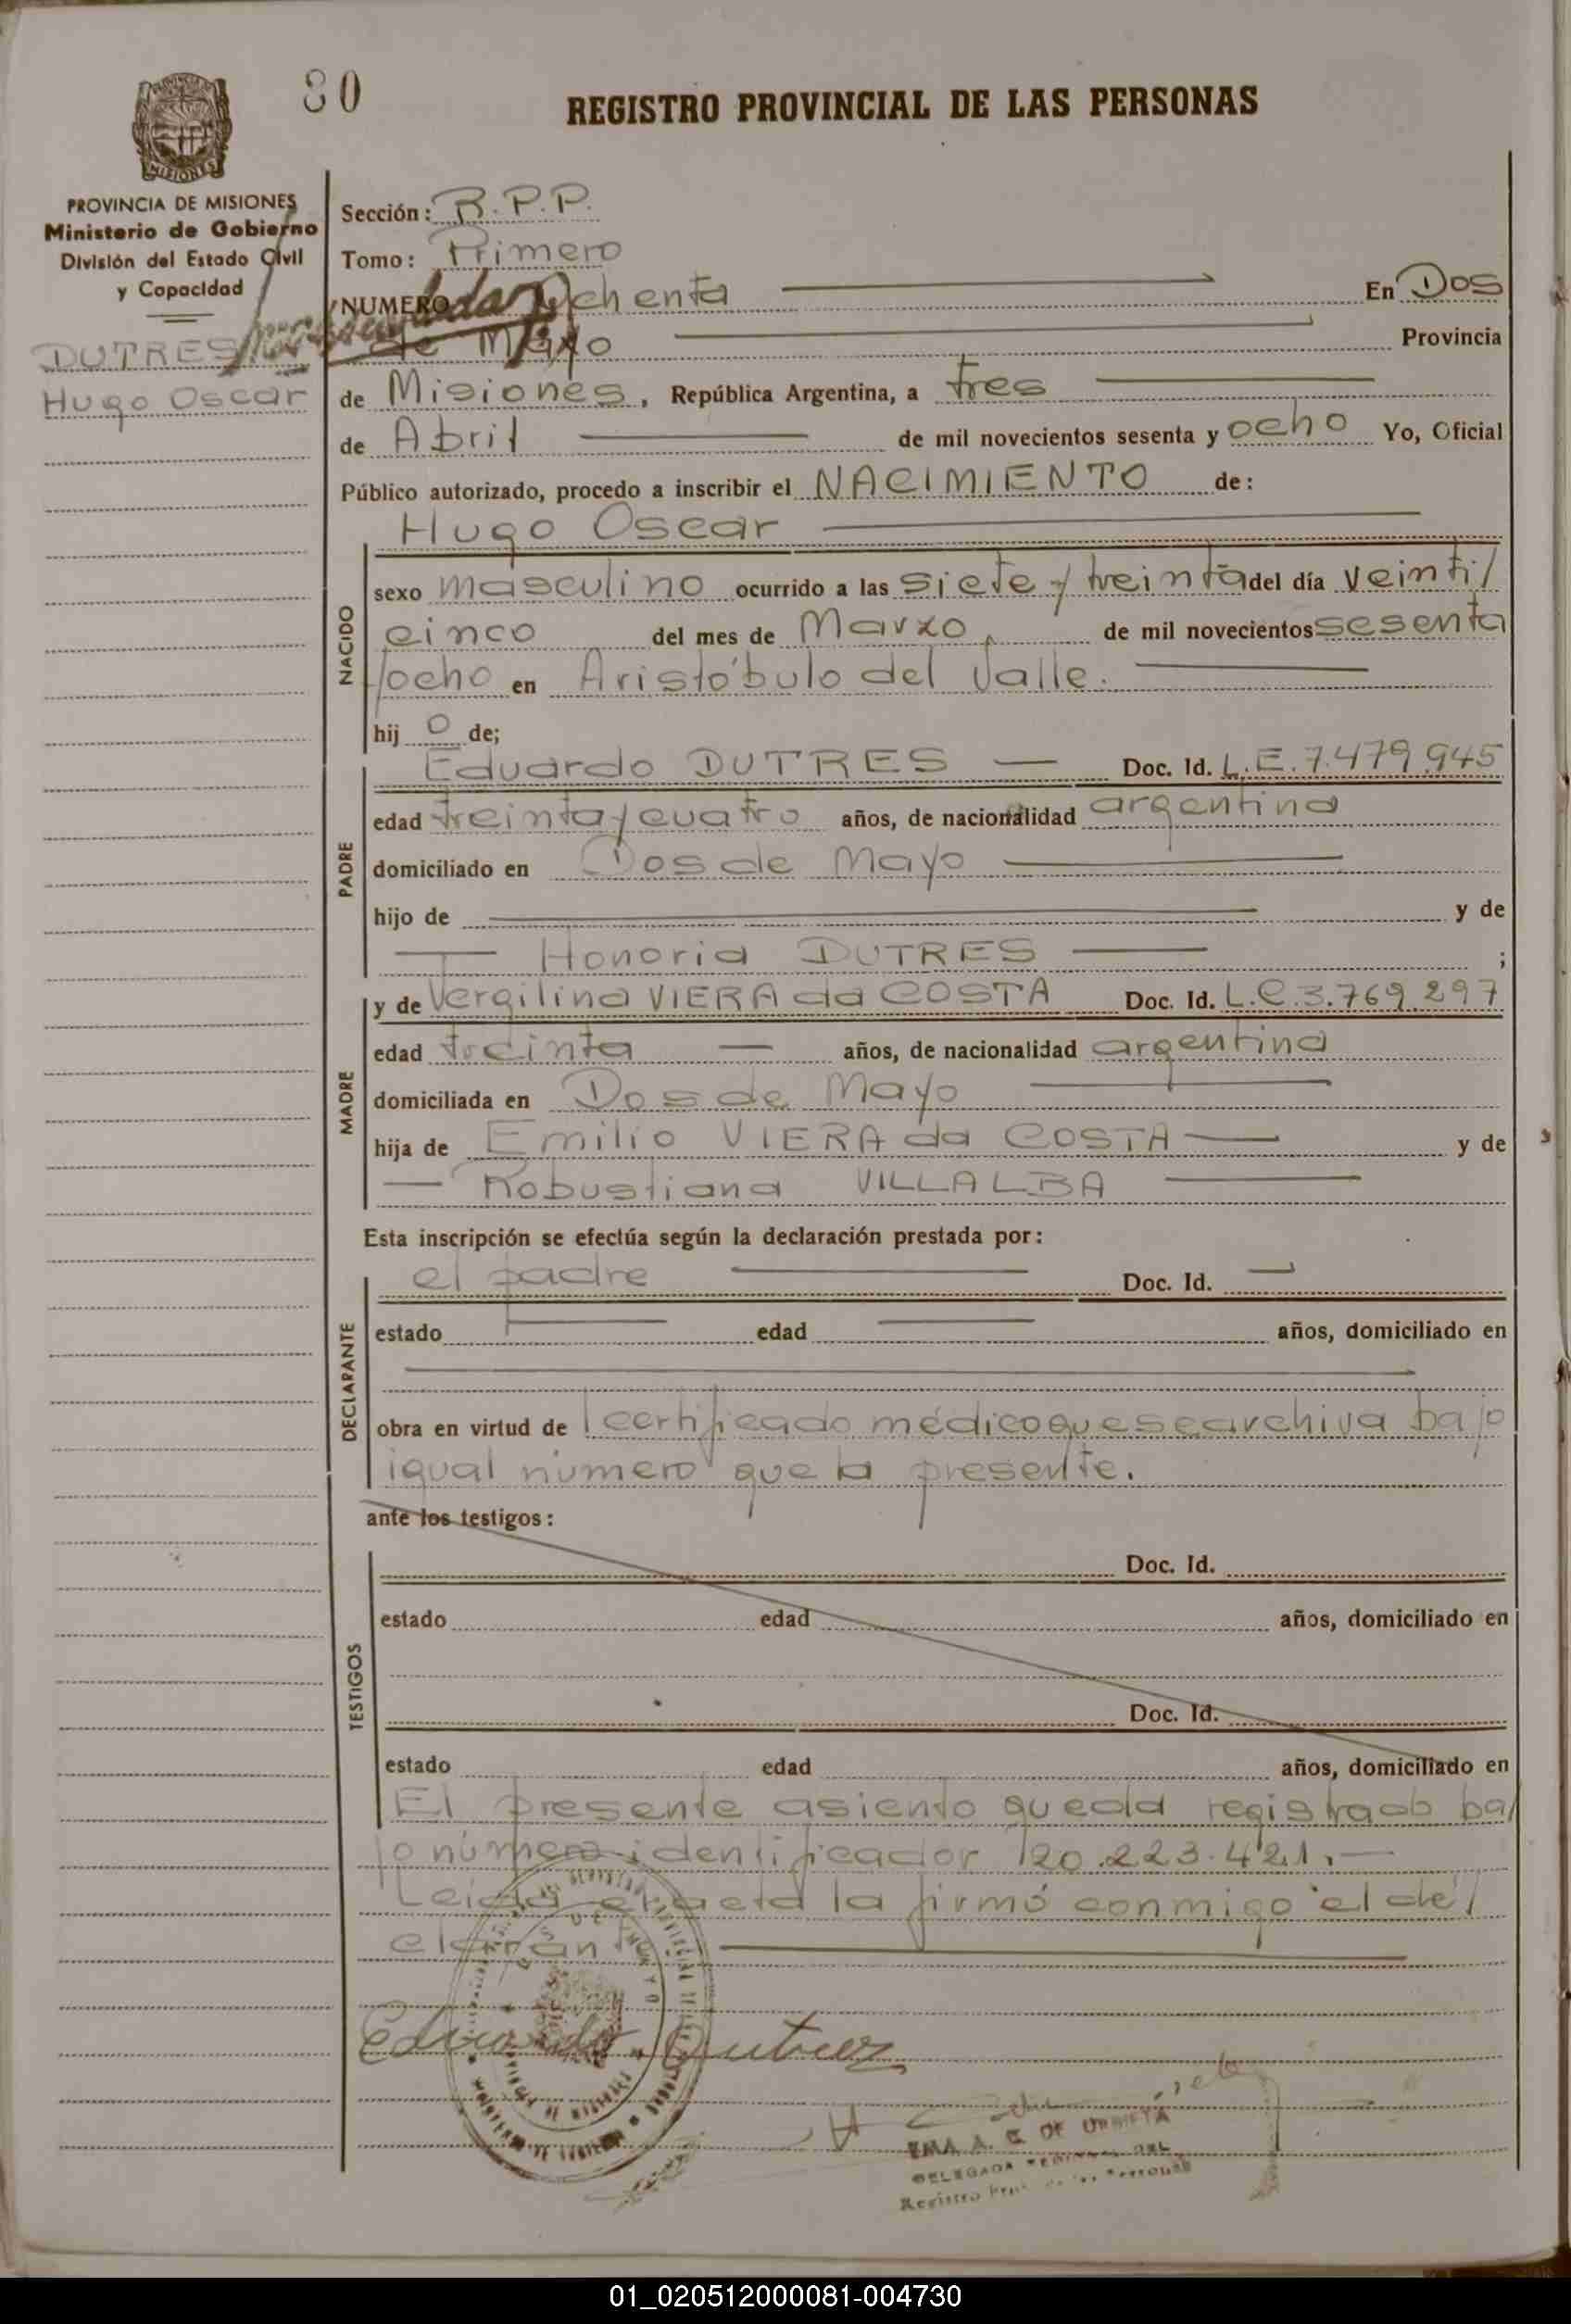 80
REGISTRO PROVINCIAL DE LAS PERSONAS
MISIONES
PROVINCIA DE MISIONES
Ministerio de Gobierno
División del Estado Civil
y Capacidad
DUTRES
Hugo Oscar
Sección: R.P.P.
Tomo: Primero
NUMERO Ochenta En Dos
de Mayo Provincia
de Misiones, República Argentina, a tres
de Abril de mil novecientos sesenta y ocho Yo, Oficial
Público autorizado, procedo a inscribir el NACIMIENTO de:
Hugo Oscar
NACIDO
sexo masculino ocurrido a las siete y treinta del día veinti/
cinco del mes de Marzo de mil novecientos sesenta
/ocho en Aristóbulo del Valle.
hij o de;
Eduardo DUTRES — Doc. Id. L.E. 7.479.945
PADRE
edad treinta y cuatro años, de nacionalidad argentina
domiciliado en Dos de Mayo
hijo de y de
— Honoria DUTRES — ;
y de Vergilina VIERA da COSTA Doc. Id. L.C. 3.769.297
MADRE
edad treinta — años, de nacionalidad argentina
domiciliada en Dos de Mayo
hija de Emilio VIERA da COSTA — y de
— Robustiana VILLALBA —
Esta inscripción se efectúa según la declaración prestada por:
el padre — Doc. Id. —
DECLARANTE
estado — edad — años, domiciliado en
obra en virtud de certificado médico que se archiva bajo
igual número que la presente.
ante los testigos:
TESTIGOS
Doc. Id.
estado edad años, domiciliado en
Doc. Id.
estado edad años, domiciliado en
El presente asiento queda registrado ba/
jo número identificador 20.223.421.—
Leida el acta la firmó conmigo el de/
clarante
Eduardo Dutres
EMA A. G. DE URRIETA
DELEGADA DEL
Registro de las Personas
01_020512000081-004730